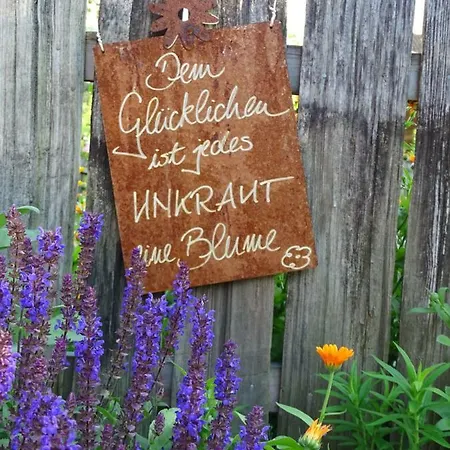 Dem
Glücklichen
ist jedes
UNKRAUT
eine Blume